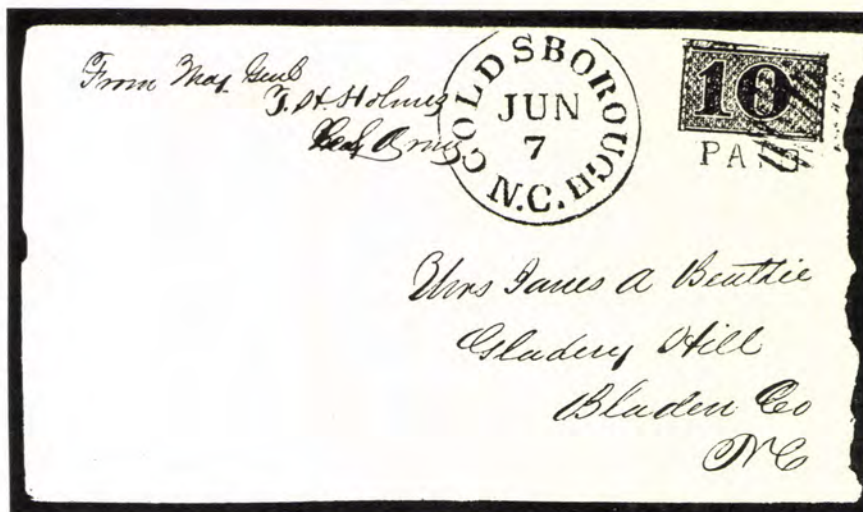 From Maj Genl
T. H. Holmes
Army
GOLDSBOROUGH N.C.
JUN
7
10
PAID
Mrs James A Beattie
Gladery Hill
Bladen Co
NC